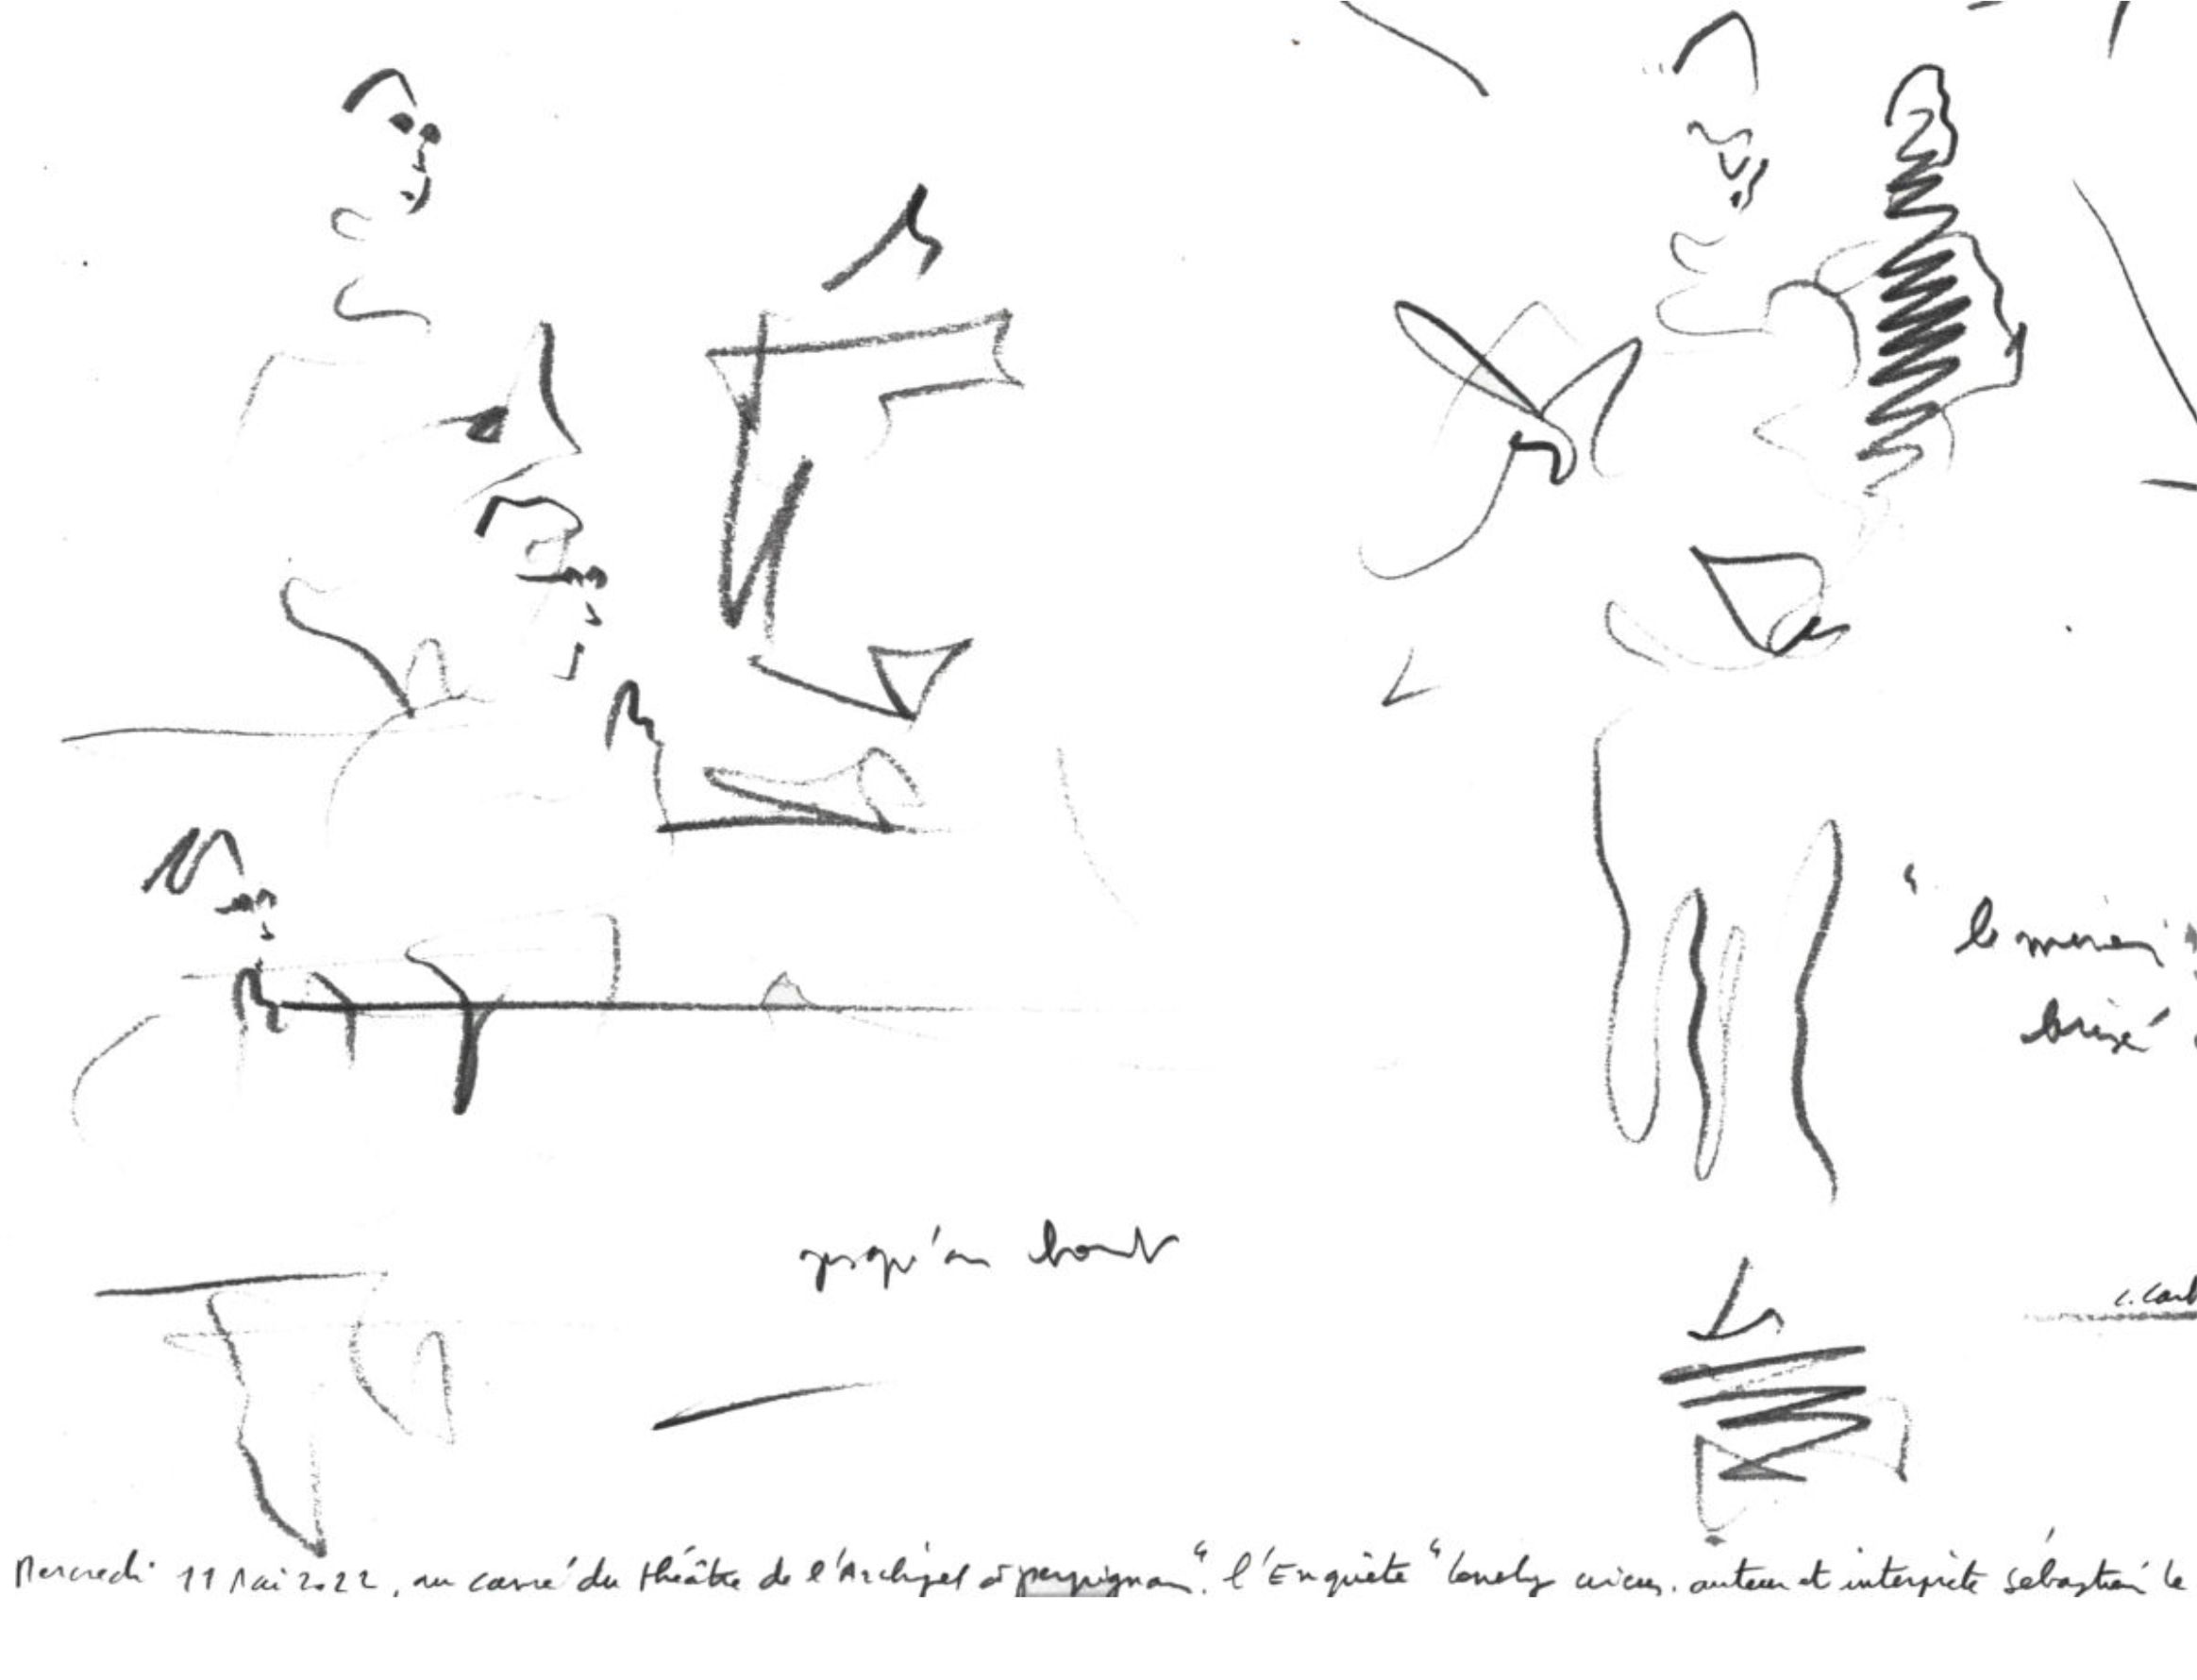 " le miroir
brisé
jusqu'au bout
C. Carb
Mercredi 11 Mai 2022, au carré du théâtre de l'Archipel à perpignan. "l'Enquête" Lonely circus. auteur et interprète sébastien le